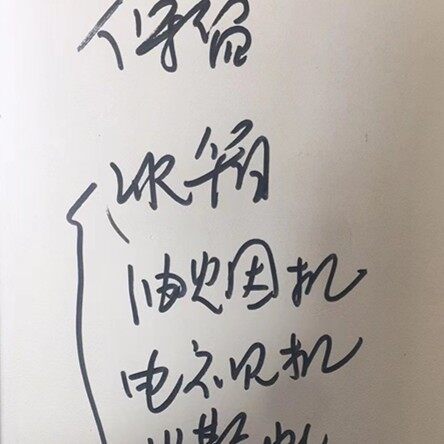 保留
冰箱
油烟机
电视机